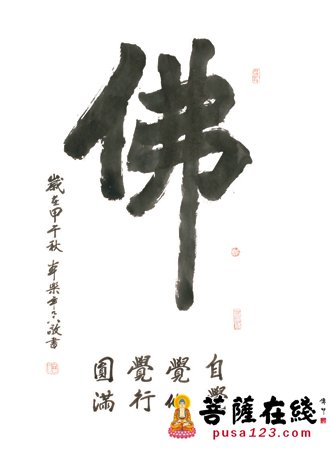 佛
歲在甲午秋
敬書
自覺
覺他
覺行
圓滿
菩薩在綫
pusa123.com